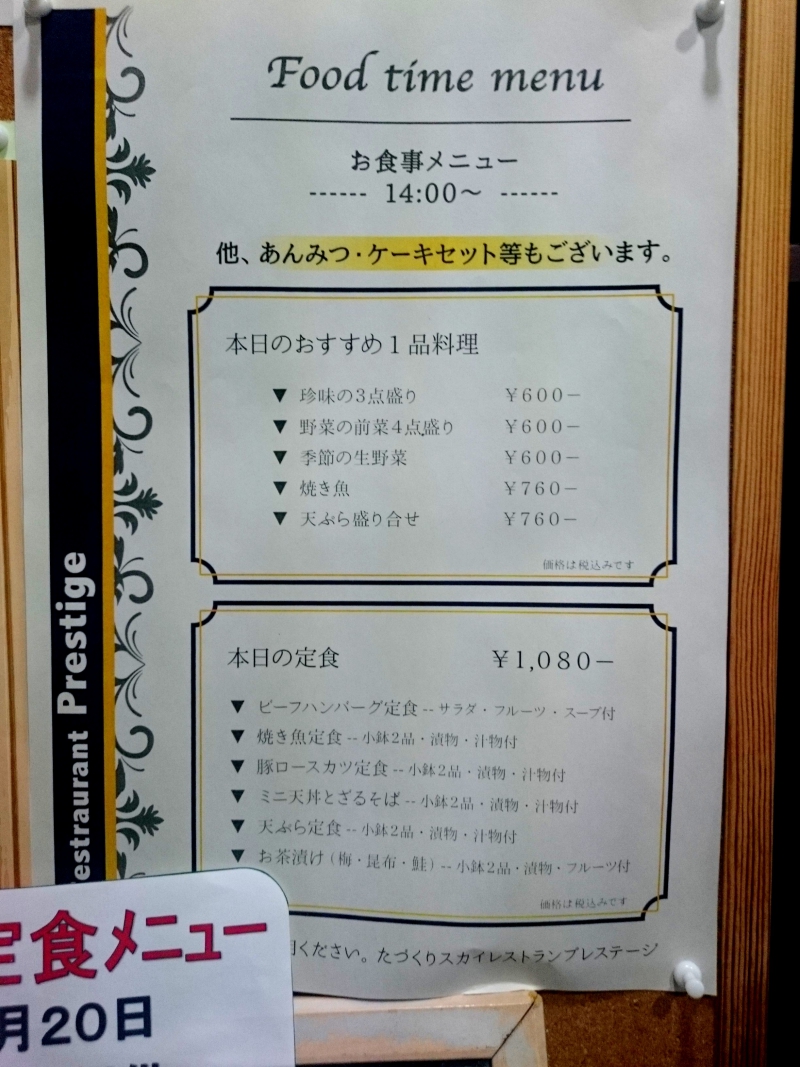 Food time menu
お食事メニュー
------ 14:00〜 ------
他、あんみつ・ケーキセット等もございます。
本日のおすすめ１品料理
▼ 珍味の３点盛り ￥６００－
▼ 野菜の前菜４点盛り ￥６００－
▼ 季節の生野菜 ￥６００－
▼ 焼き魚 ￥７６０－
▼ 天ぷら盛り合せ ￥７６０－
価格は税込みです
本日の定食 ￥１,０８０－
▼ ビーフハンバーグ定食 -- サラダ・フルーツ・スープ付
▼ 焼き魚定食 -- 小鉢２品・漬物・汁物付
▼ 豚ロースカツ定食 -- 小鉢２品・漬物・汁物付
▼ ミニ天丼とざるそば -- 小鉢２品・漬物・汁物付
▼ 天ぷら定食 -- 小鉢２品・漬物・汁物付
▼ お茶漬け（梅・昆布・鮭）-- 小鉢２品・漬物・フルーツ付
価格は税込みです
ください。たづくりスカイレストランプレステージ
estraurant Prestige
定食メニュー
月20日